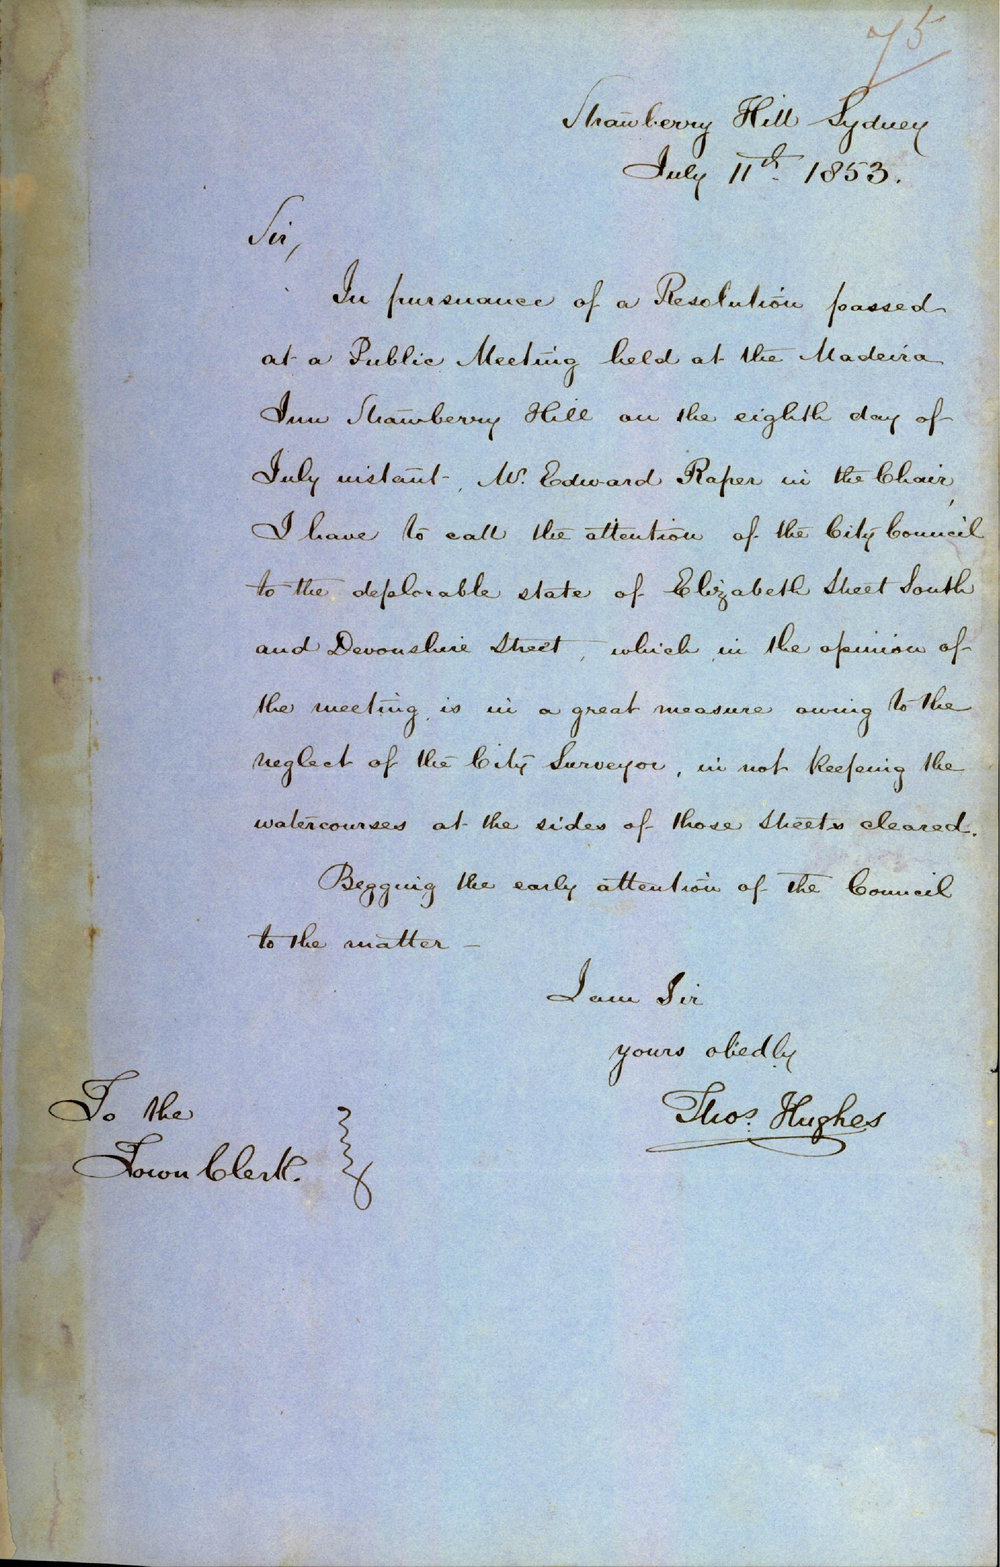 75
Strawberry Hill Sydney
July 11th. 1853.
Sir,
In pursuance of a Resolution passed
at a Public Meeting held at the Madeira
Inn Strawberry Hill on the eighth day of
July instant, Mr. Edward Raper in the Chair,
I have to call the attention of the City Council
to the deplorable state of Elizabeth Street South
and Devonshire Street, which, in the opinion of
the meeting, is in a great measure owing to the
neglect of the City Surveyor, in not keeping the
watercourses at the sides of those streets cleared.
Begging the early attention of the Council
to the matter —
I am Sir
yours obedly
Thos. Hughes
To the
Town Clerk.